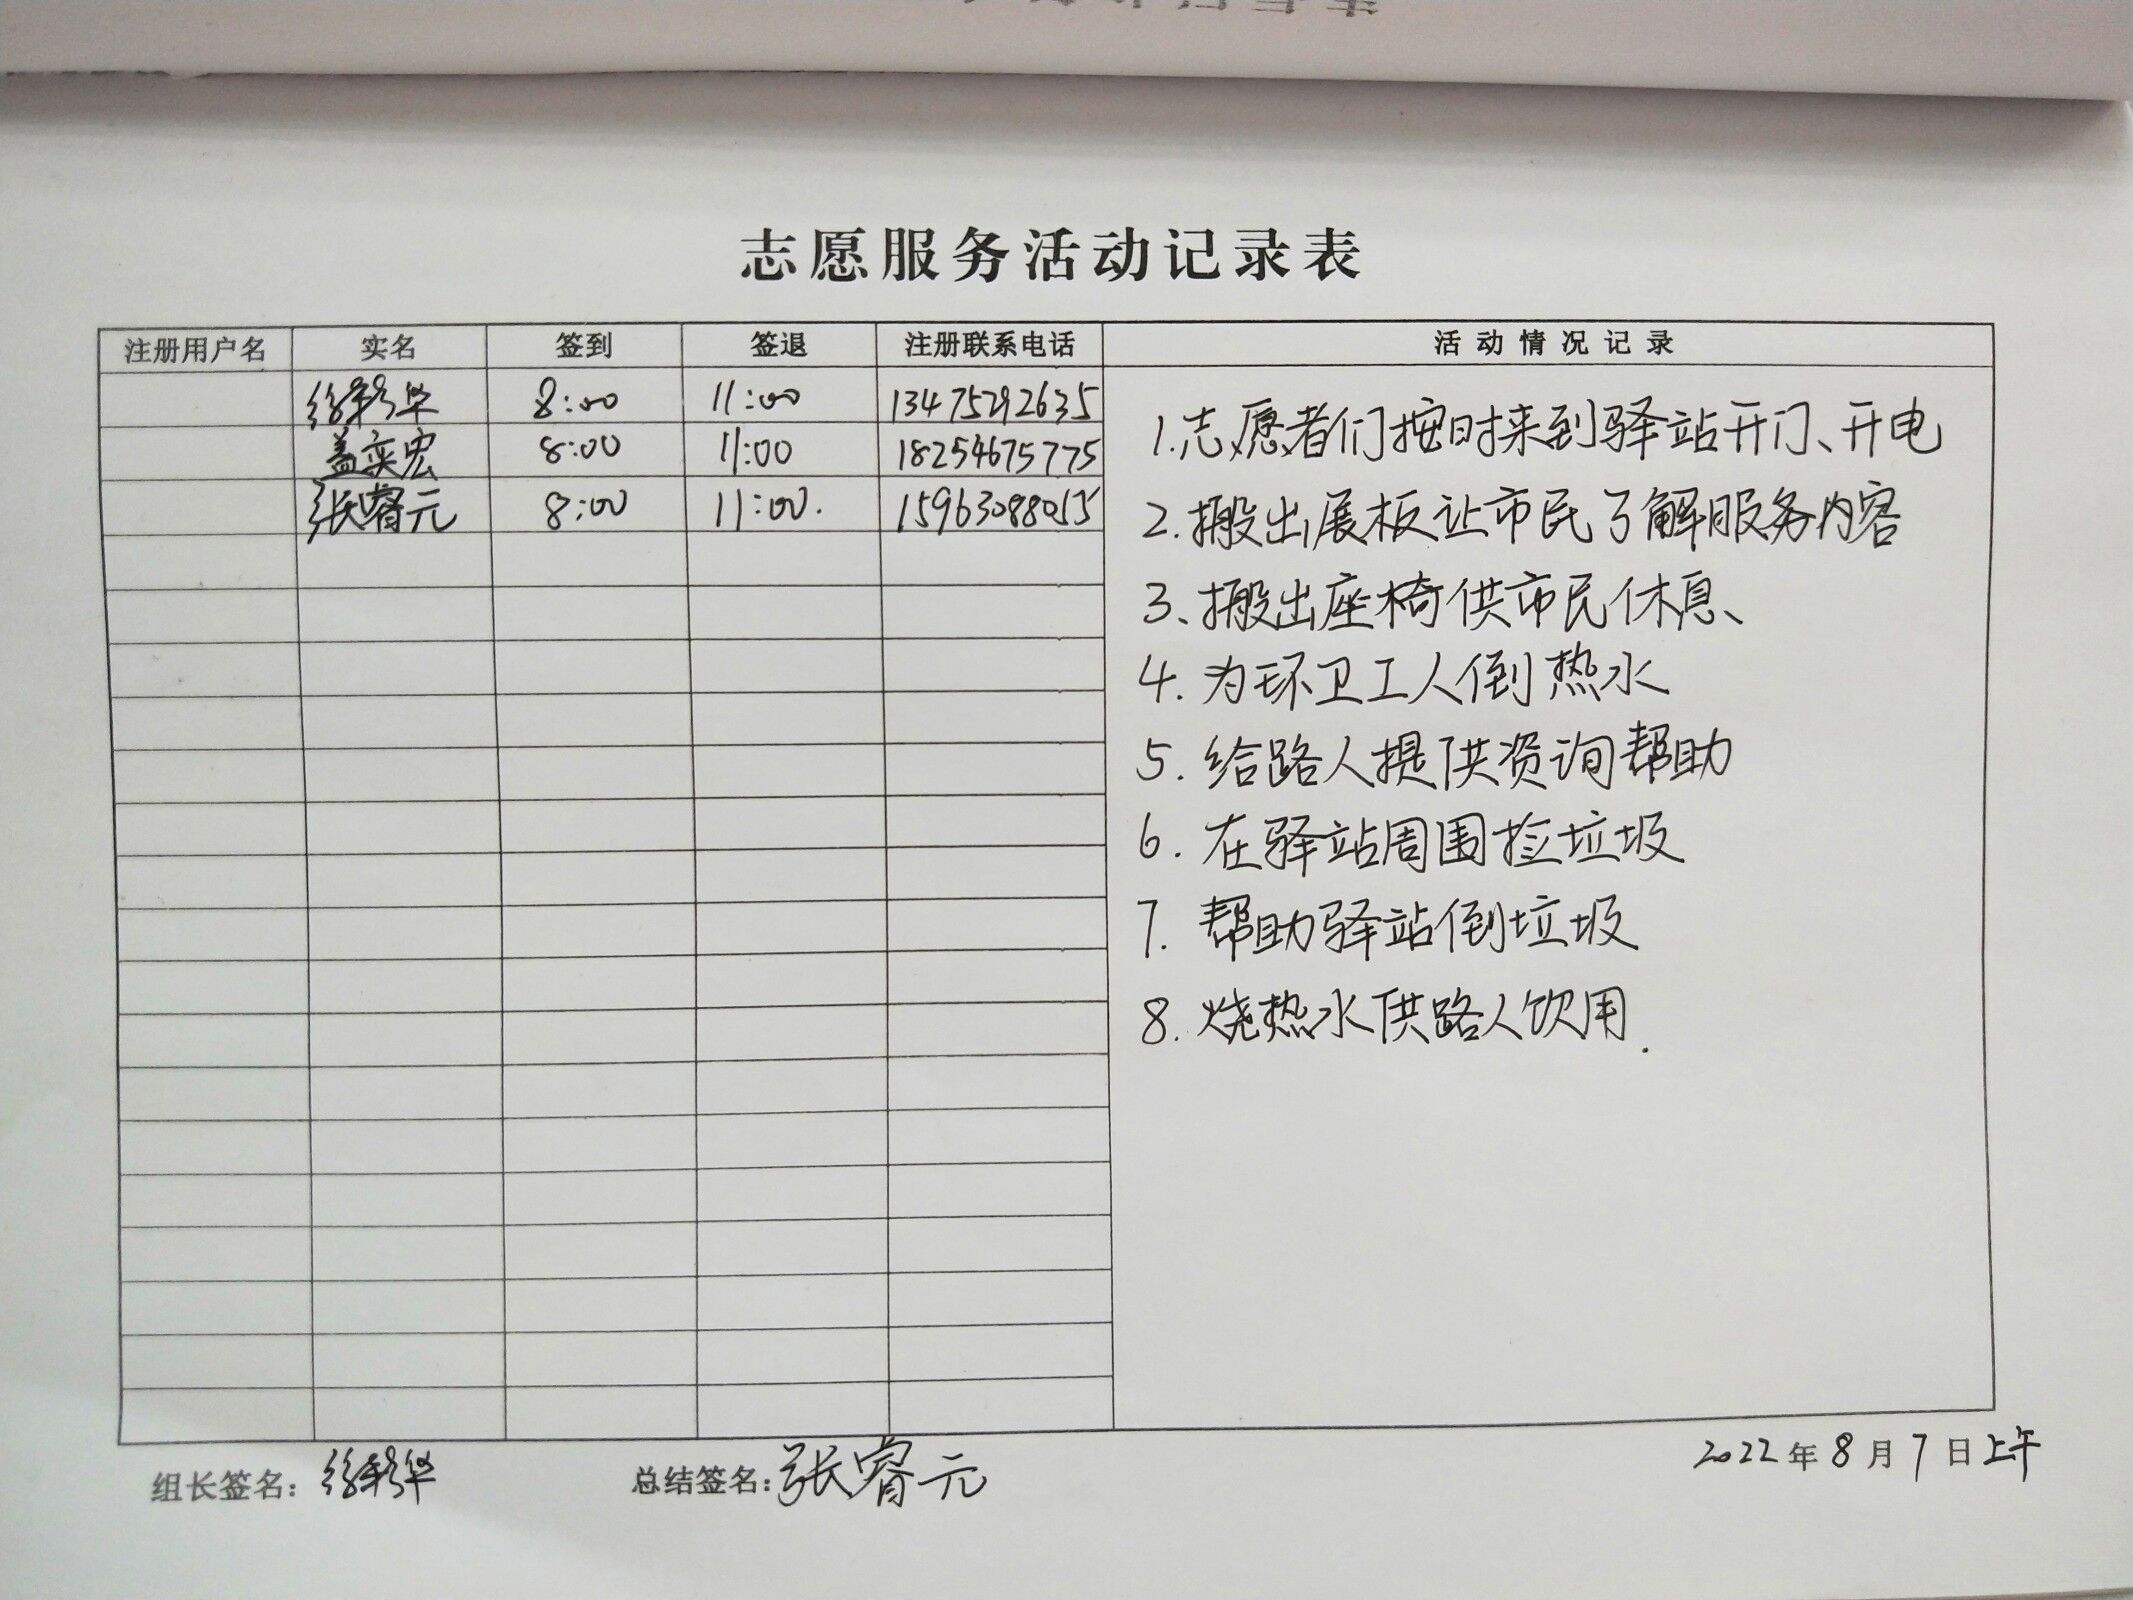 志愿服务活动记录表
注册用户名 实名 签到 签退 注册联系电话 活动情况记录
8:00 11:00 13475292635
盖奕宏 8:00 11:00 18254675775
张睿元 8:00 11:00. 15963088055
1.志愿者们按时来到驿站开门、开电
2.搬出展板让市民了解服务内容
3、搬出座椅供市民休息、
4.为环卫工人倒热水
5.给路人提供资询帮助
6.在驿站周围捡垃圾
7.帮助驿站倒垃圾
8.烧热水供路人饮用.
组长签名: 总结签名:张睿元 2022年8月7日上午